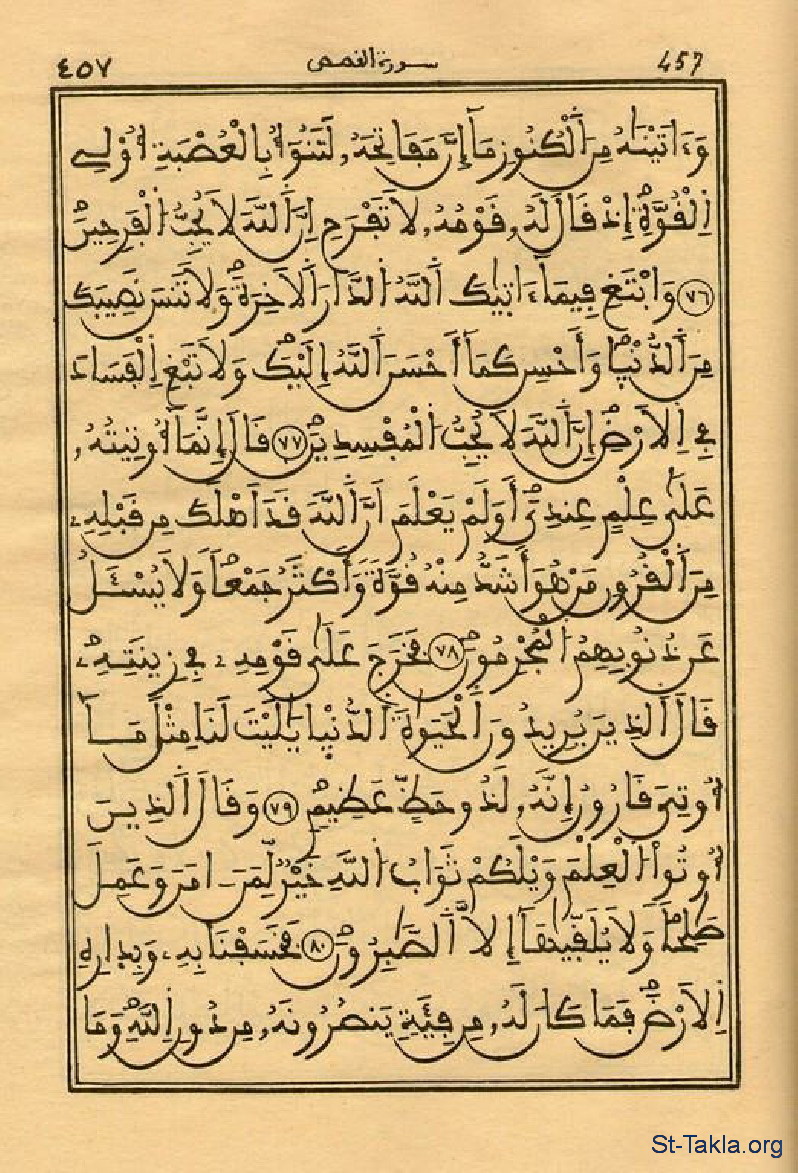 457 سورة القصص ٤٥٧
وَءَاتَيْنَٰهُ مِنَ اَ۬لْكُنُوزِ مَآ إِنَّ مَفَاتِحَهُۥ لَتَنُوٓأُ بِالْعُصْبَةِ أُوْلِے
اِ۬لْقُوَّةِۖ إِذْ قَالَ لَهُۥ قَوْمُهُۥ لَا تَفْرَحِ اِنَّ اَ۬للَّهَ لَا يُحِبُّ اُ۬لْفَرِحِينَۖ
٧٦ وَابْتَغِ فِيمَآ ءَاتٰيٰكَ اَ۬للَّهُ اُ۬لدَّارَ اَ۬لَاخِرَةَۖ وَلَا تَنسَ نَصِيبَكَ
مِنَ اَ۬لدُّنْيٰاۖ وَأَحْسِن كَمَآ أَحْسَنَ اَ۬للَّهُ إِلَيْكَۖ وَلَا تَبْغِ اِ۬لْفَسَادَ
فِے اِ۬لَارْضِۖ إِنَّ اَ۬للَّهَ لَا يُحِبُّ اُ۬لْمُفْسِدِينَۖ ٧٧ قَالَ إِنَّمَآ أُوتِيتُهُۥ
عَلَىٰ عِلْمٍ عِندِيَۖ أَوَلَمْ يَعْلَمَ اَنَّ اَ۬للَّهَ قَدَ اَهْلَكَ مِن قَبْلِهِۦ
مِنَ اَ۬لْقُرُونِ مَنْ هُوَ أَشَدُّ مِنْهُ قُوَّةً وَأَكْثَرُ جَمْعاًۖ وَلَا يُسْـَٔلُ
عَن ذُنُوبِهِمُ اُ۬لْمُجْرِمُونَۖ ٧٨ فَخَرَجَ عَلَىٰ قَوْمِهِۦ فِے زِينَتِهِۦۖ
قَالَ اَ۬لذِينَ يُرِيدُونَ اَ۬لْحَيَوٰةَ اَ۬لدُّنْيٰا يَٰلَيْتَ لَنَا مِثْلَ مَآ
أُوتِيَ قَٰرُونُ إِنَّهُۥ لَذُو حَظٍّ عَظِيمٍۖ ٧٩ وَقَالَ اَ۬لذِينَ
أُوتُواْ اُ۬لْعِلْمَ وَيْلَكُمْ ثَوَابُ اُ۬للَّهِ خَيْرٌ لِّمَنَ اٰمَنَ وَعَمِلَ
صَٰلِحاًۖ وَلَا يُلَقَّيٰهَآ إِلَّا اَ۬لصَّٰبِرُونَۖ ٨٠ فَخَسَفْنَا بِهِۦ وَبِدَارِهِ
اِ۬لَارْضَۖ فَمَا كَانَ لَهُۥ مِن فِئَةٍ يَنصُرُونَهُۥ مِن دُونِ اِ۬للَّهِۖ وَمَا
St-Takla.org